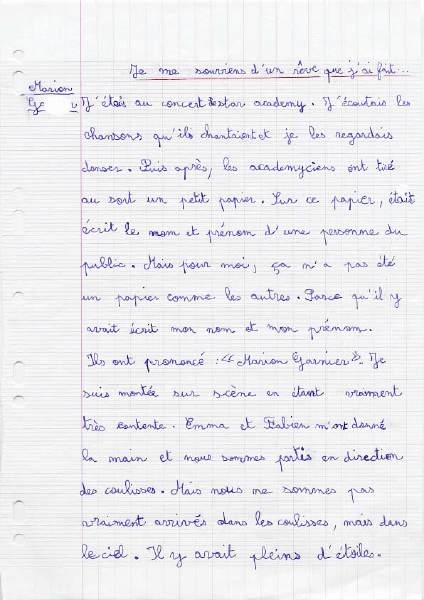 Je me souviens d'un rêve que j'ai fait...
Marion
Ge u
J'étais au concert de star academy. J'écoutais les
chansons qu'ils chantaient et je les regardais
danser. Puis après, les academyciens ont tiré
au sort un petit papier. Sur ce papier, était
écrit le nom et prénom d'une personne du
public. Mais pour moi, ça n'a pas été
un papier comme les autres. Parce qu'il y
avait écrit mon nom et mon prénom.
Ils ont prononcé : "Marion Garnier". Je
suis montée sur scène en étant vraiment
très contente. Emma et Fabien m'ont donné
la main et nous sommes partis en direction
des coulisses. Mais nous ne sommes pas
vraiment arrivés dans les coulisses, mais dans
le ciel. Il y avait pleins d'étoiles.